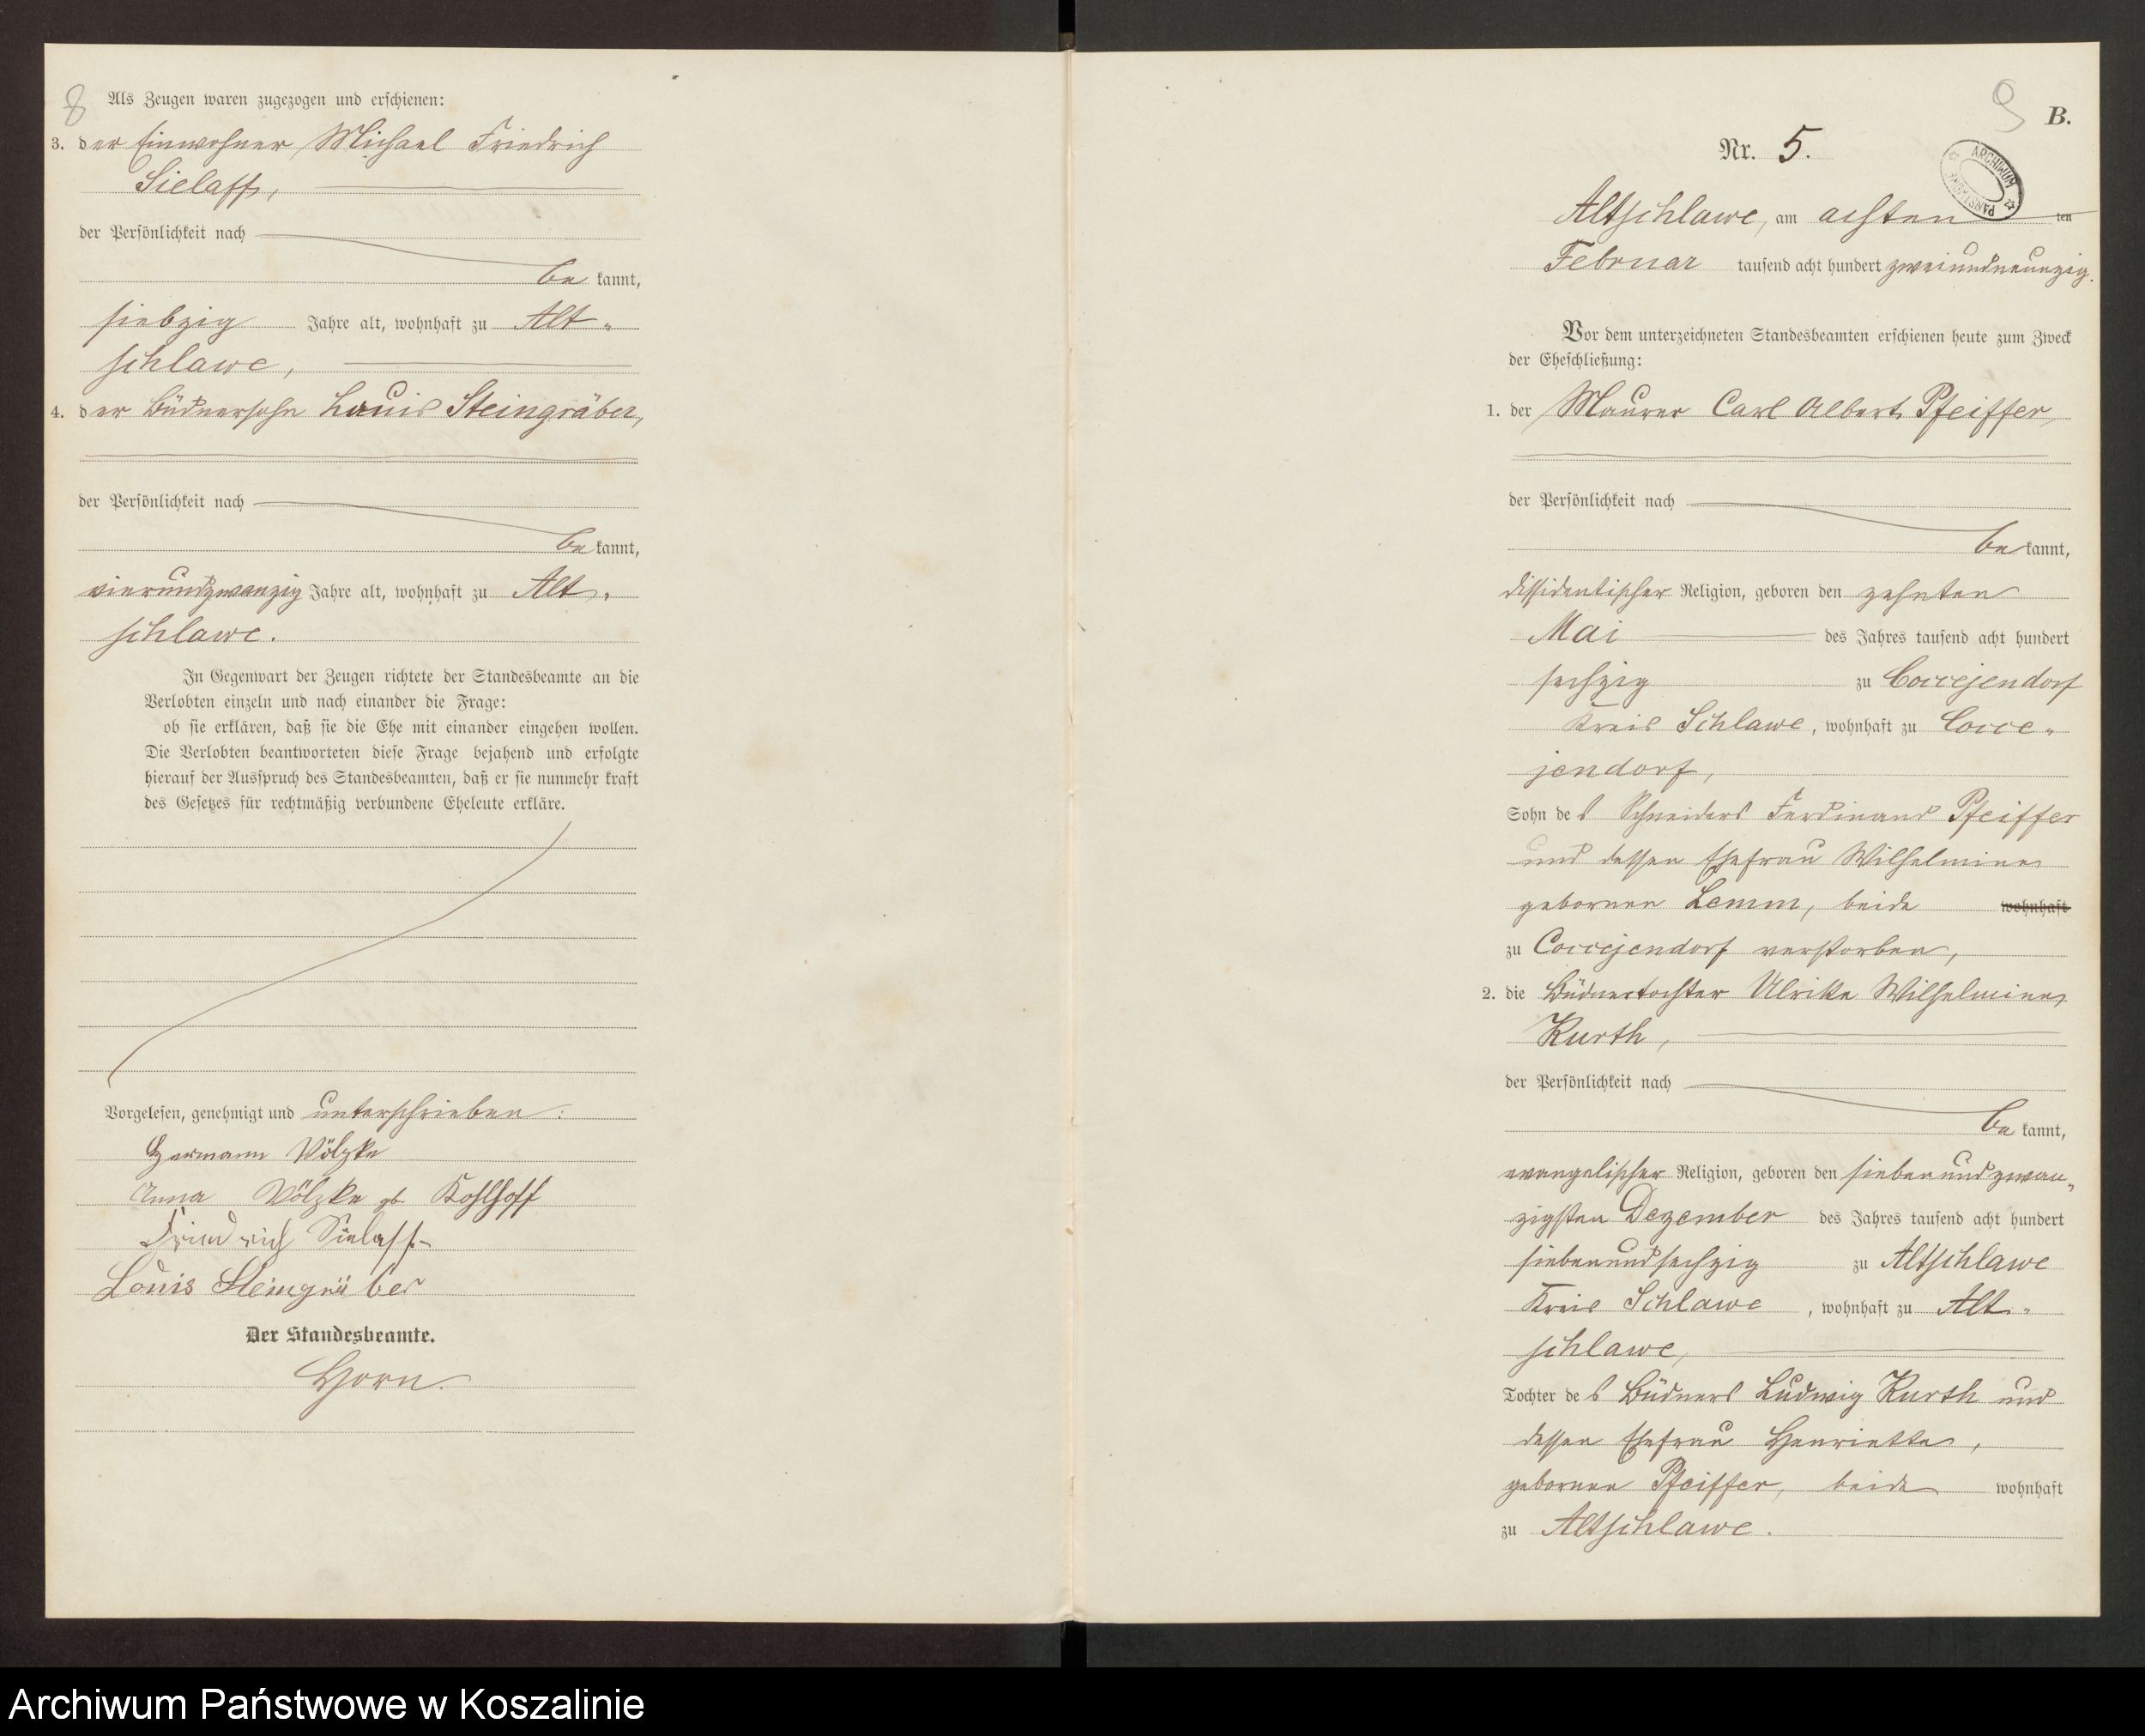 8
Als Zeugen waren zugezogen und erschienen:
3. der Einwohner Michael Friedrich
Sielaff,
der Persönlichkeit nach
be kannt,
siebzig Jahre alt, wohnhaft zu Alt-
schlawe,
4. der Büdnersohn Louis Steingräber,
der Persönlichkeit nach
be kannt,
vierundzwanzig Jahre alt, wohnhaft zu Alt-
schlawe.
In Gegenwart der Zeugen richtete der Standesbeamte an die
Verlobten einzeln und nach einander die Frage:
ob sie erklären, daß sie die Ehe mit einander eingehen wollen.
Die Verlobten beantworteten diese Frage bejahend und erfolgte
hierauf der Ausspruch des Standesbeamten, daß er sie nunmehr kraft
des Gesetzes für rechtmäßig verbundene Eheleute erkläre.
Vorgelesen, genehmigt und unterschrieben:
Hermann Völzke
Anna Völzke gb. Kohlhoff
Friedrich Sielaff
Louis Steingräber
Der Standesbeamte.
Horn.
9
B.
Nr. 5.
ARCHIWUM PAŃSTWOWE
Altschlawe, am achten ten
Februar tausend acht hundert zweiundneunzig.
Vor dem unterzeichneten Standesbeamten erschienen heute zum Zweck
der Eheschließung:
1. der Maurer Carl Albert Pfeiffer,
der Persönlichkeit nach
be kannt,
dissidentischer Religion, geboren den zehnten
Mai des Jahres tausend acht hundert
sechzig zu Coccejendorf
Kreis Schlawe, wohnhaft zu Cocce-
jendorf,
Sohn des Schneiders Ferdinand Pfeiffer
und dessen Ehefrau Wilhelmine
gebornen Lemm, beide wohnhaft
zu Coccejendorf verstorben,
2. die Büdnertochter Ulrike Wilhelmine
Kurth,
der Persönlichkeit nach
be kannt,
evangelischer Religion, geboren den siebenundzwan-
zigsten Dezember des Jahres tausend acht hundert
siebenundsechzig zu Altschlawe
Kreis Schlawe, wohnhaft zu Alt-
schlawe,
Tochter des Büdners Ludwig Kurth und
dessen Ehefrau Henriette,
gebornen Pfeiffer, beide wohnhaft
zu Altschlawe.
Archiwum Państwowe w Koszalinie